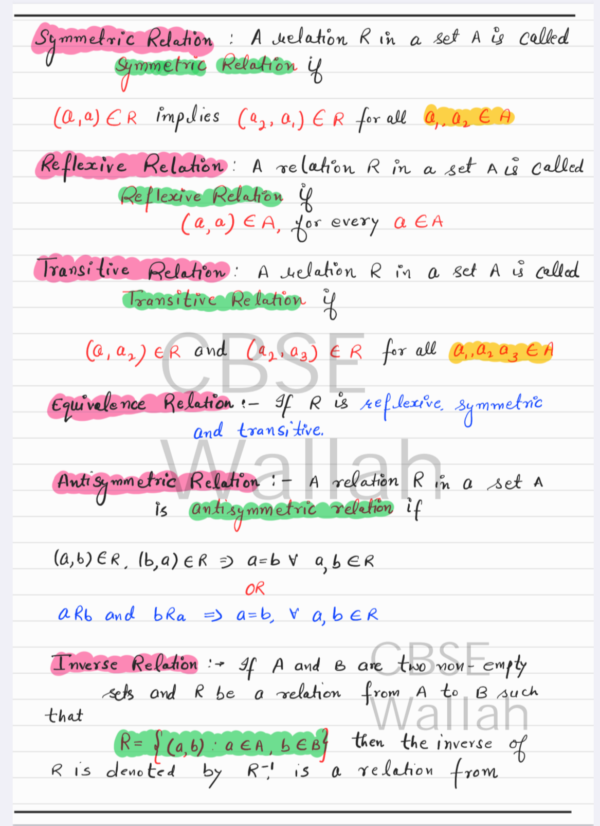 Symmetric Relation : A relation R in a set A is called
Symmetric Relation if
(a,a) ∈ R implies (a₂, a₁) ∈ R for all a₁, a₂ ∈ A
Reflexive Relation : A relation R in a set A is called
Reflexive Relation if
(a,a) ∈ A, for every a ∈ A
Transitive Relation : A relation R in a set A is called
Transitive Relation if
(a, a₂) ∈ R and (a₂, a₃) ∈ R for all a, a₂ a₃ ∈ A
CBSE
Equivalence Relation :- If R is reflexive, symmetric
and transitive.
Wallah
Antisymmetric Relation :- A relation R in a set A
is antisymmetric relation if
(a,b) ∈ R, (b,a) ∈ R ⇒ a=b ∀ a,b ∈ R
OR
aRb and bRa ⇒ a=b, ∀ a,b ∈ R
CBSE
Inverse Relation :→ If A and B are two non-empty
sets and R be a relation from A to B such
Wallah
that
R= {(a,b) : a ∈ A, b ∈ B} then the inverse of
R is denoted by R⁻¹ is a relation from